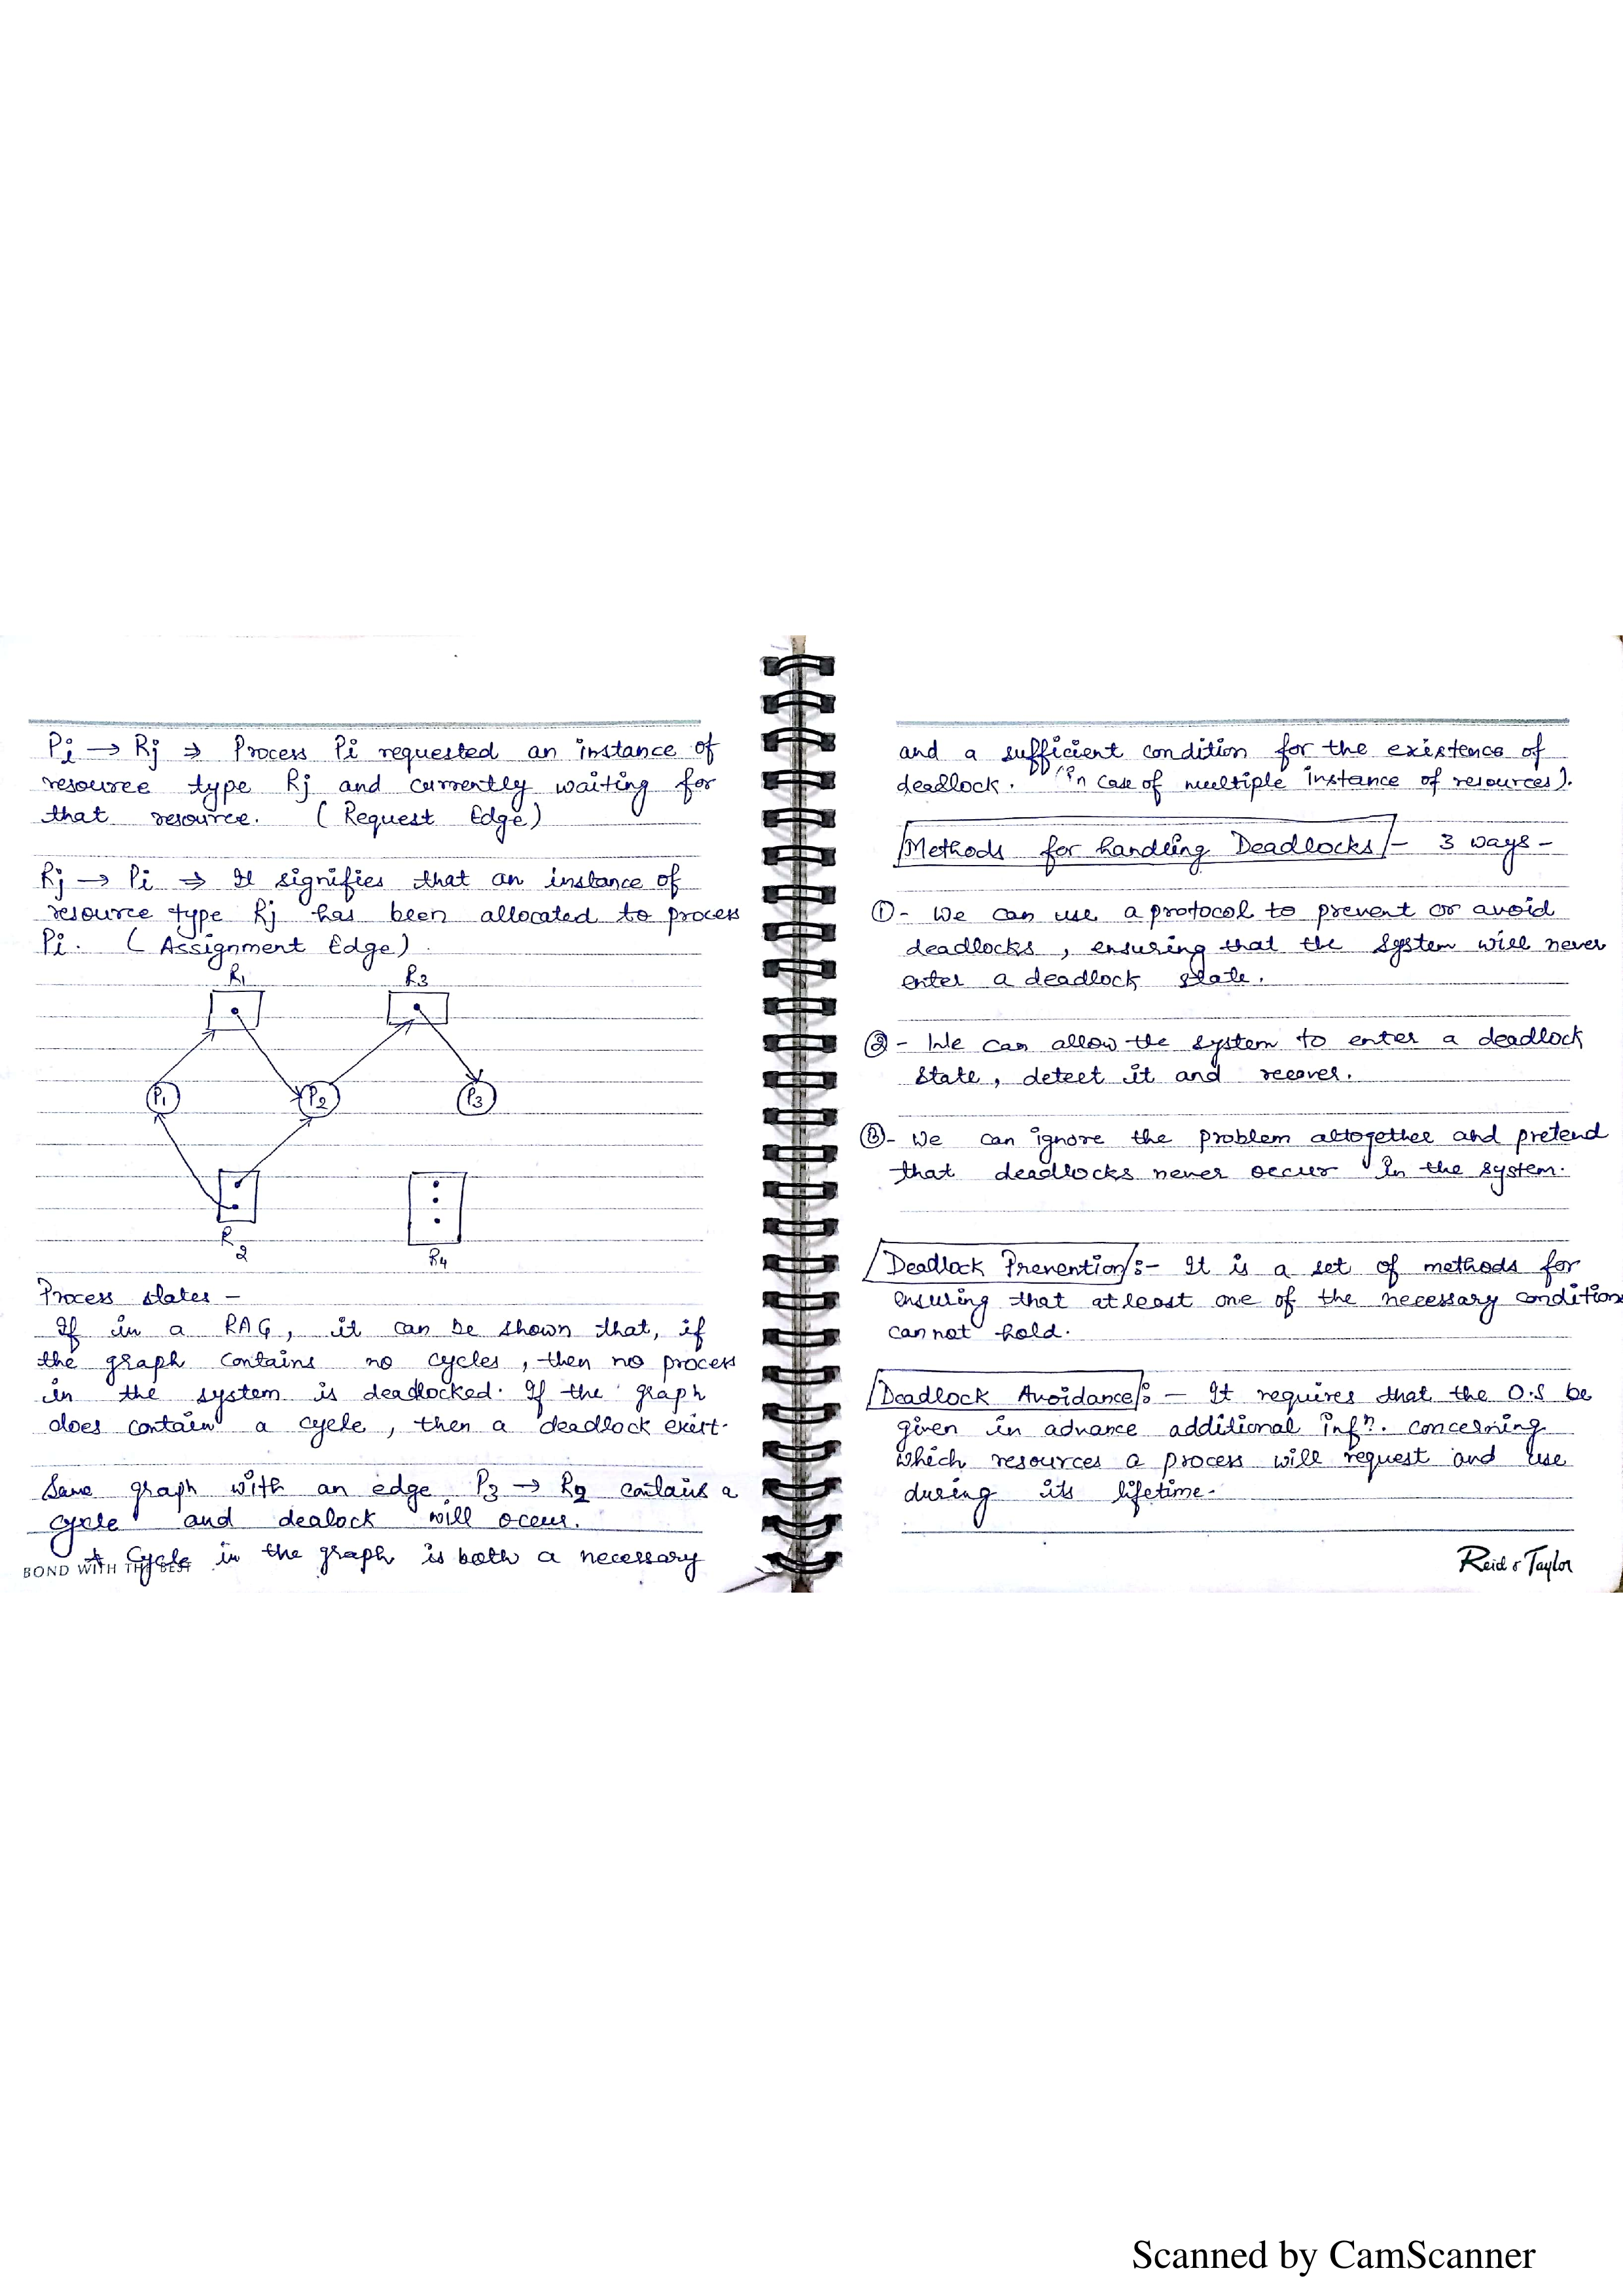 Pi → Rj ⇒ Process Pi requested an instance of
resource type Rj and currently waiting for
that resource. (Request Edge)
Rj → Pi ⇒ It signifies that an instance of
resource type Rj has been allocated to process
Pi. (Assignment Edge)
R1 R3
P1 P2 P3
R2 R4
Process states -
If in a RAG, it can be shown that, if
the graph contains no cycles, then no process
in the system is deadlocked. If the graph
does contain a cycle, then a deadlock exist.
Same graph with an edge P3 → R2 contains a
cycle and dealock will occur.
A Cycle in the graph is both a necessary
BOND WITH THE BEST
and a sufficient condition for the existence of
deadlock. (in case of multiple instance of resources).
Methods for handling Deadlocks - 3 ways -
① - We can use a protocol to prevent or avoid
deadlocks, ensuring that the system will never
enter a deadlock state.
② - We can allow the system to enter a deadlock
state, detect it and recover.
③ - We can ignore the problem altogether and pretend
that deadlocks never occur in the system.
Deadlock Prevention :- It is a set of methods for
ensuring that atleast one of the necessary condition
cannot hold.
Deadlock Avoidance :- It requires that the O.S be
given in advance additional infn. concerning
which resources a process will request and use
during its lifetime.
Reid & Taylor
Scanned by CamScanner